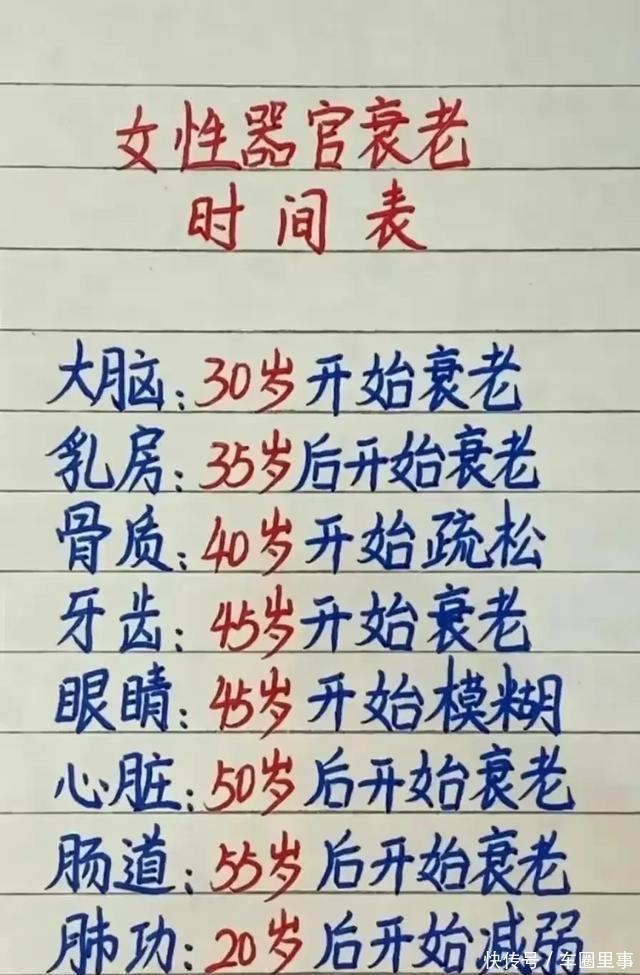 女性器官衰老
时间表
大脑:30岁开始衰老
乳房:35岁后开始衰老
骨质:40岁开始疏松
牙齿:45岁开始衰老
眼睛:45岁开始模糊
心脏:50岁后开始衰老
肠道:55岁后开始衰老
肺功:20岁后开始减弱
快传号/车圈里事